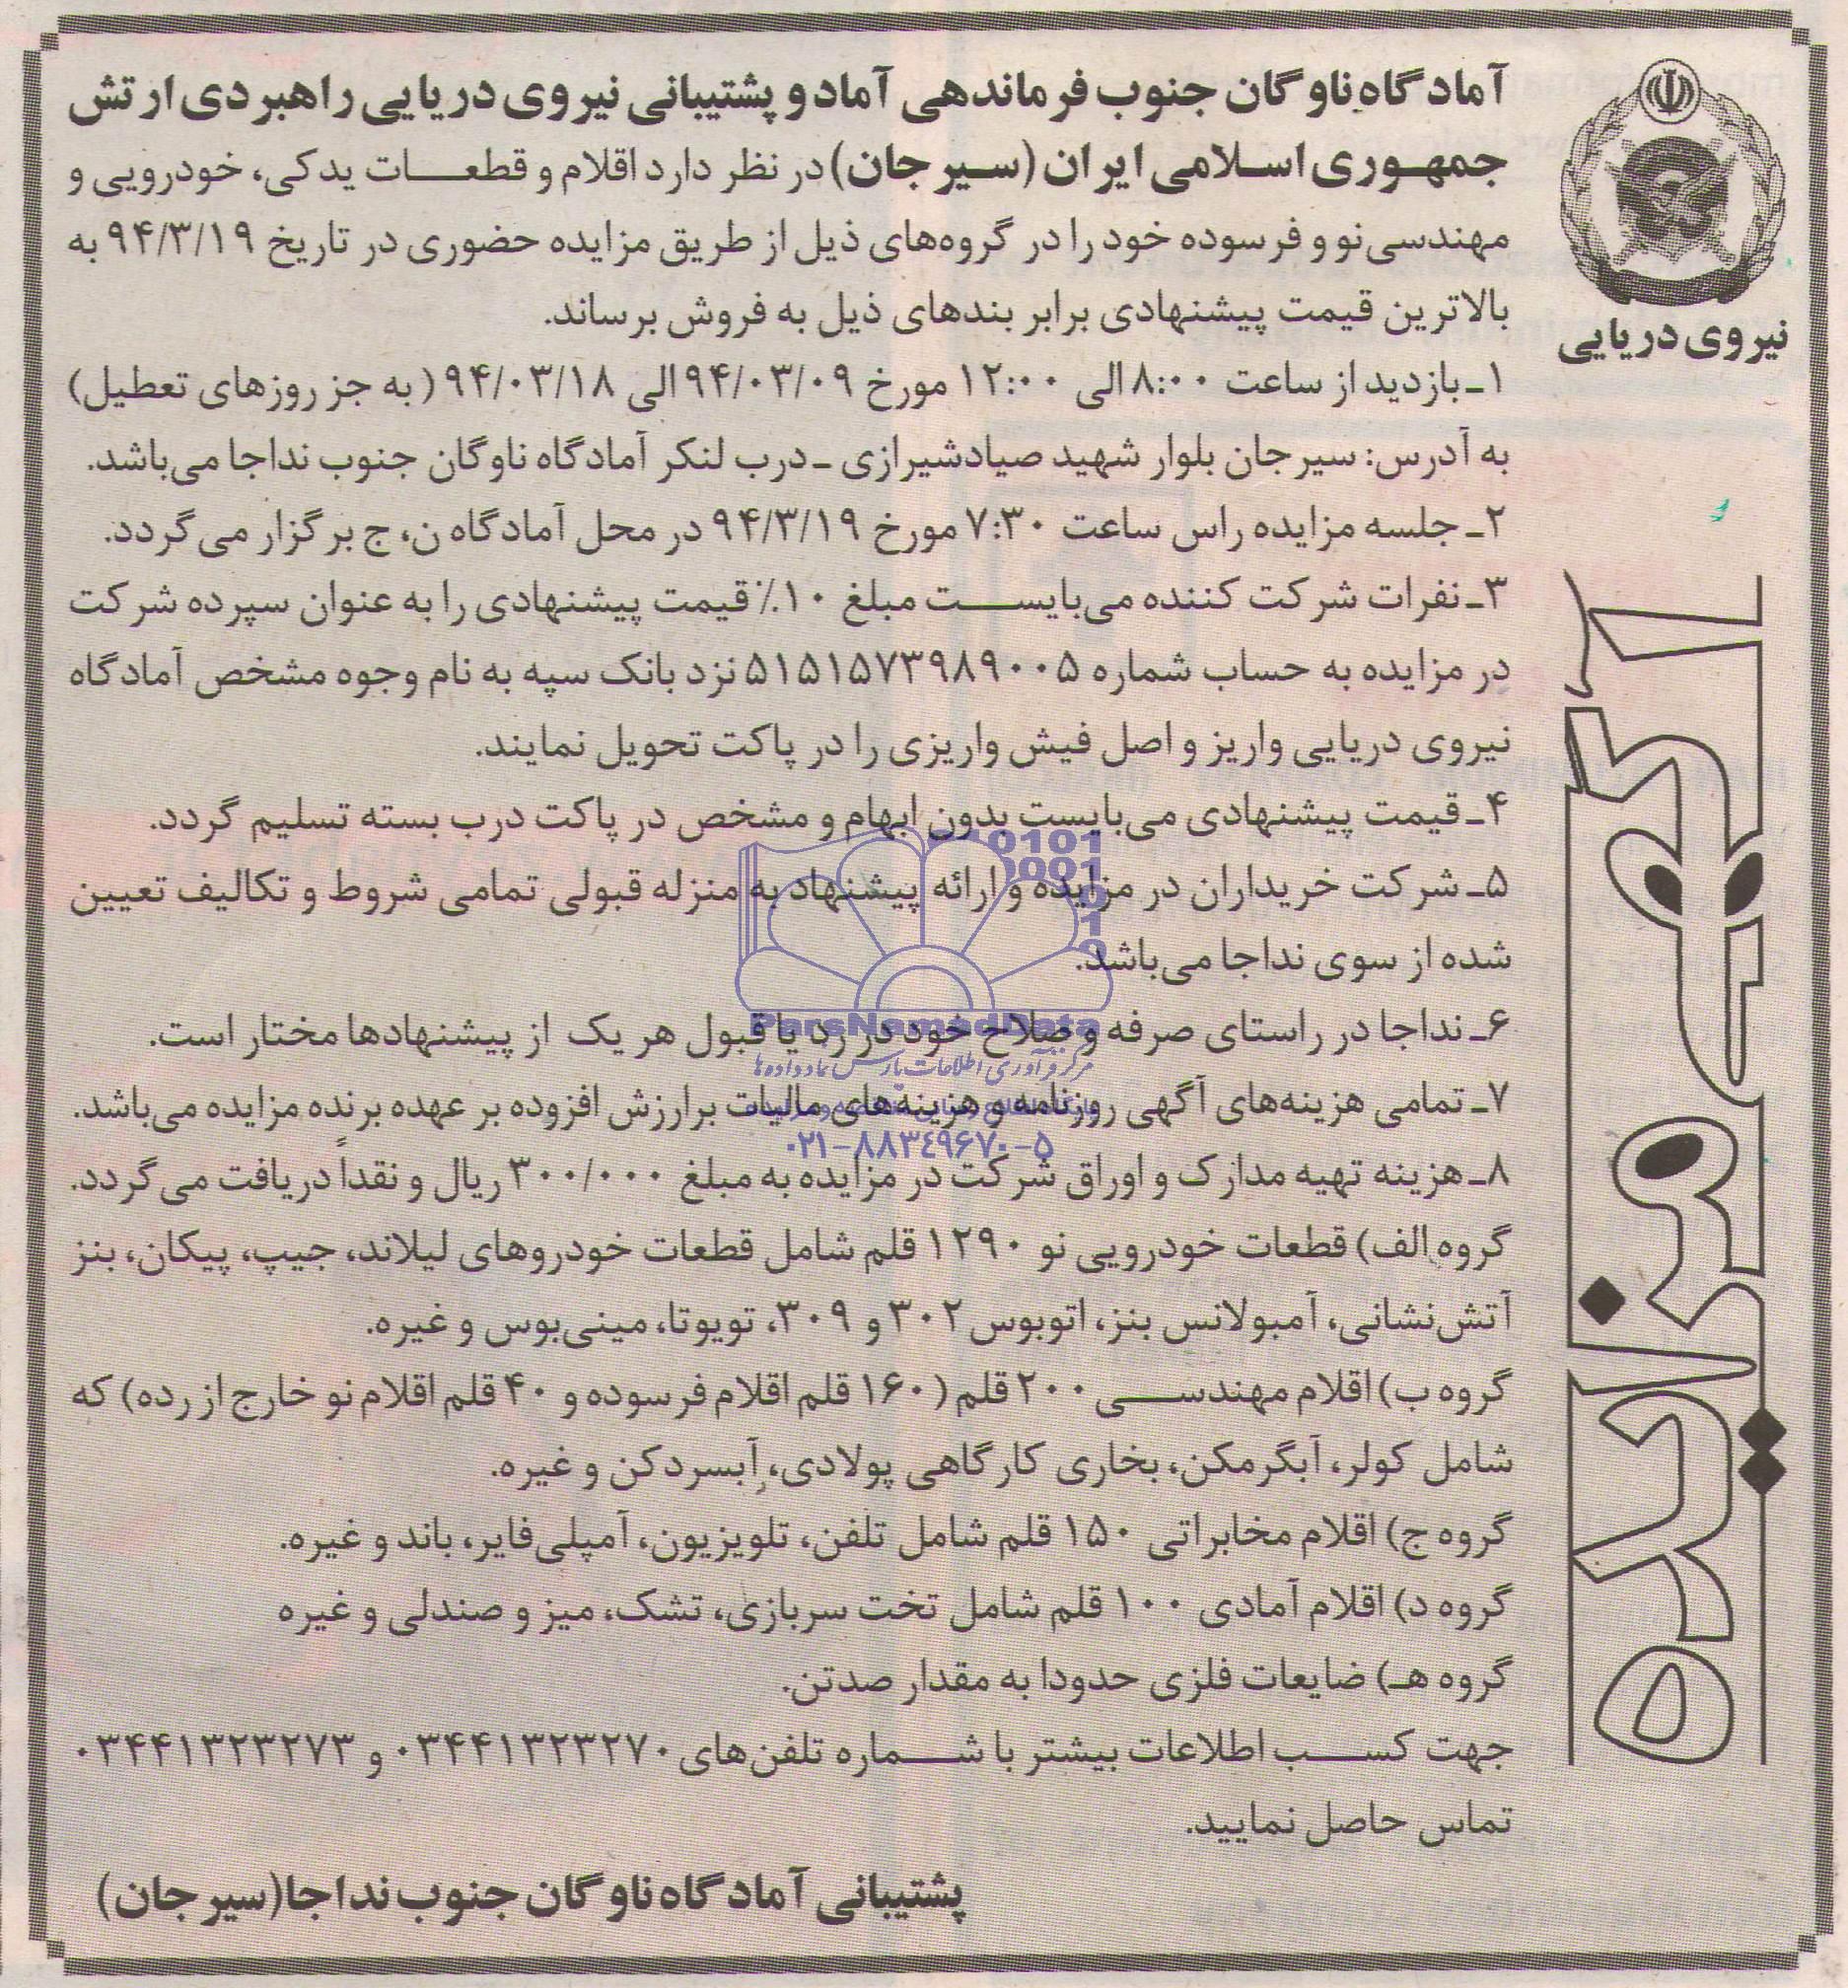 نیروی دریایی
آگهی مزایده
آمادگاه ناوگان جنوب فرماندهی آماد و پشتیبانی نیروی دریایی راهبردی ارتش
جمهوری اسلامی ایران (سیرجان) در نظر دارد اقلام و قطعات یدکی، خودرویی و
مهندسی نو و فرسوده خود را در گروه‌های ذیل از طریق مزایده حضوری در تاریخ ۹۴/۳/۱۹ به
بالاترین قیمت پیشنهادی برابر بندهای ذیل به فروش برساند.
۱ـ بازدید از ساعت ۸:۰۰ الی ۱۲:۰۰ مورخ ۹۴/۰۳/۰۹ الی ۹۴/۰۳/۱۸ ( به جز روزهای تعطیل)
به آدرس: سیرجان بلوار شهید صیادشیرازی ـ درب لنکر آمادگاه ناوگان جنوب نداجا می‌باشد.
۲ـ جلسه مزایده راس ساعت ۷:۳۰ مورخ ۹۴/۳/۱۹ در محل آمادگاه ن، ج برگزار می‌گردد.
۳ـ نفرات شرکت کننده می‌بایست مبلغ ۱۰٪ قیمت پیشنهادی را به عنوان سپرده شرکت
در مزایده به حساب شماره ۵۱۵۱۵۷۳۹۸۹۰۰۵ نزد بانک سپه به نام وجوه مشخص آمادگاه
نیروی دریایی واریز و اصل فیش واریزی را در پاکت تحویل نمایند.
۴ـ قیمت پیشنهادی می‌بایست بدون ابهام و مشخص در پاکت درب بسته تسلیم گردد.
۵ـ شرکت خریداران در مزایده و ارائه پیشنهاد به منزله قبولی تمامی شروط و تکالیف تعیین
شده از سوی نداجا می‌باشد.
۶ـ نداجا در راستای صرفه و صلاح خود در رد یا قبول هر یک از پیشنهادها مختار است.
۷ـ تمامی هزینه‌های آگهی روزنامه و هزینه‌های مالیات بر ارزش افزوده بر عهده برنده مزایده می‌باشد.
۸ـ هزینه تهیه مدارک و اوراق شرکت در مزایده به مبلغ ۳۰۰/۰۰۰ ریال و نقداً دریافت می‌گردد.
گروه الف) قطعات خودرویی نو ۱۲۹۰ قلم شامل قطعات خودروهای لیلاند، جیپ، پیکان، بنز
آتش‌نشانی، آمبولانس بنز، اتوبوس ۳۰۲ و ۳۰۹، تویوتا، مینی‌بوس و غیره.
گروه ب) اقلام مهندسی ۲۰۰ قلم (۱۶۰ قلم اقلام فرسوده و ۴۰ قلم اقلام نو خارج از رده) که
شامل کولر، آبگرمکن، بخاری کارگاهی پولادی، آبسردکن و غیره.
گروه ج) اقلام مخابراتی ۱۵۰ قلم شامل تلفن، تلویزیون، آمپلی‌فایر، باند و غیره.
گروه د) اقلام آمادی ۱۰۰ قلم شامل تخت سربازی، تشک، میز و صندلی و غیره
گروه هـ) ضایعات فلزی حدودا به مقدار صدتن.
جهت کسب اطلاعات بیشتر با شماره تلفن‌های ۰۳۴۴۱۳۲۳۲۷۰ و ۰۳۴۴۱۳۲۳۲۷۳
تماس حاصل نمایید.
پشتیبانی آمادگاه ناوگان جنوب نداجا(سیرجان)
ParsNamadData
مرکز فرآوری اطلاعات پارس نماد داده‌ها
۰۲۱-۸۸۳۴۹۶۷۰-۵